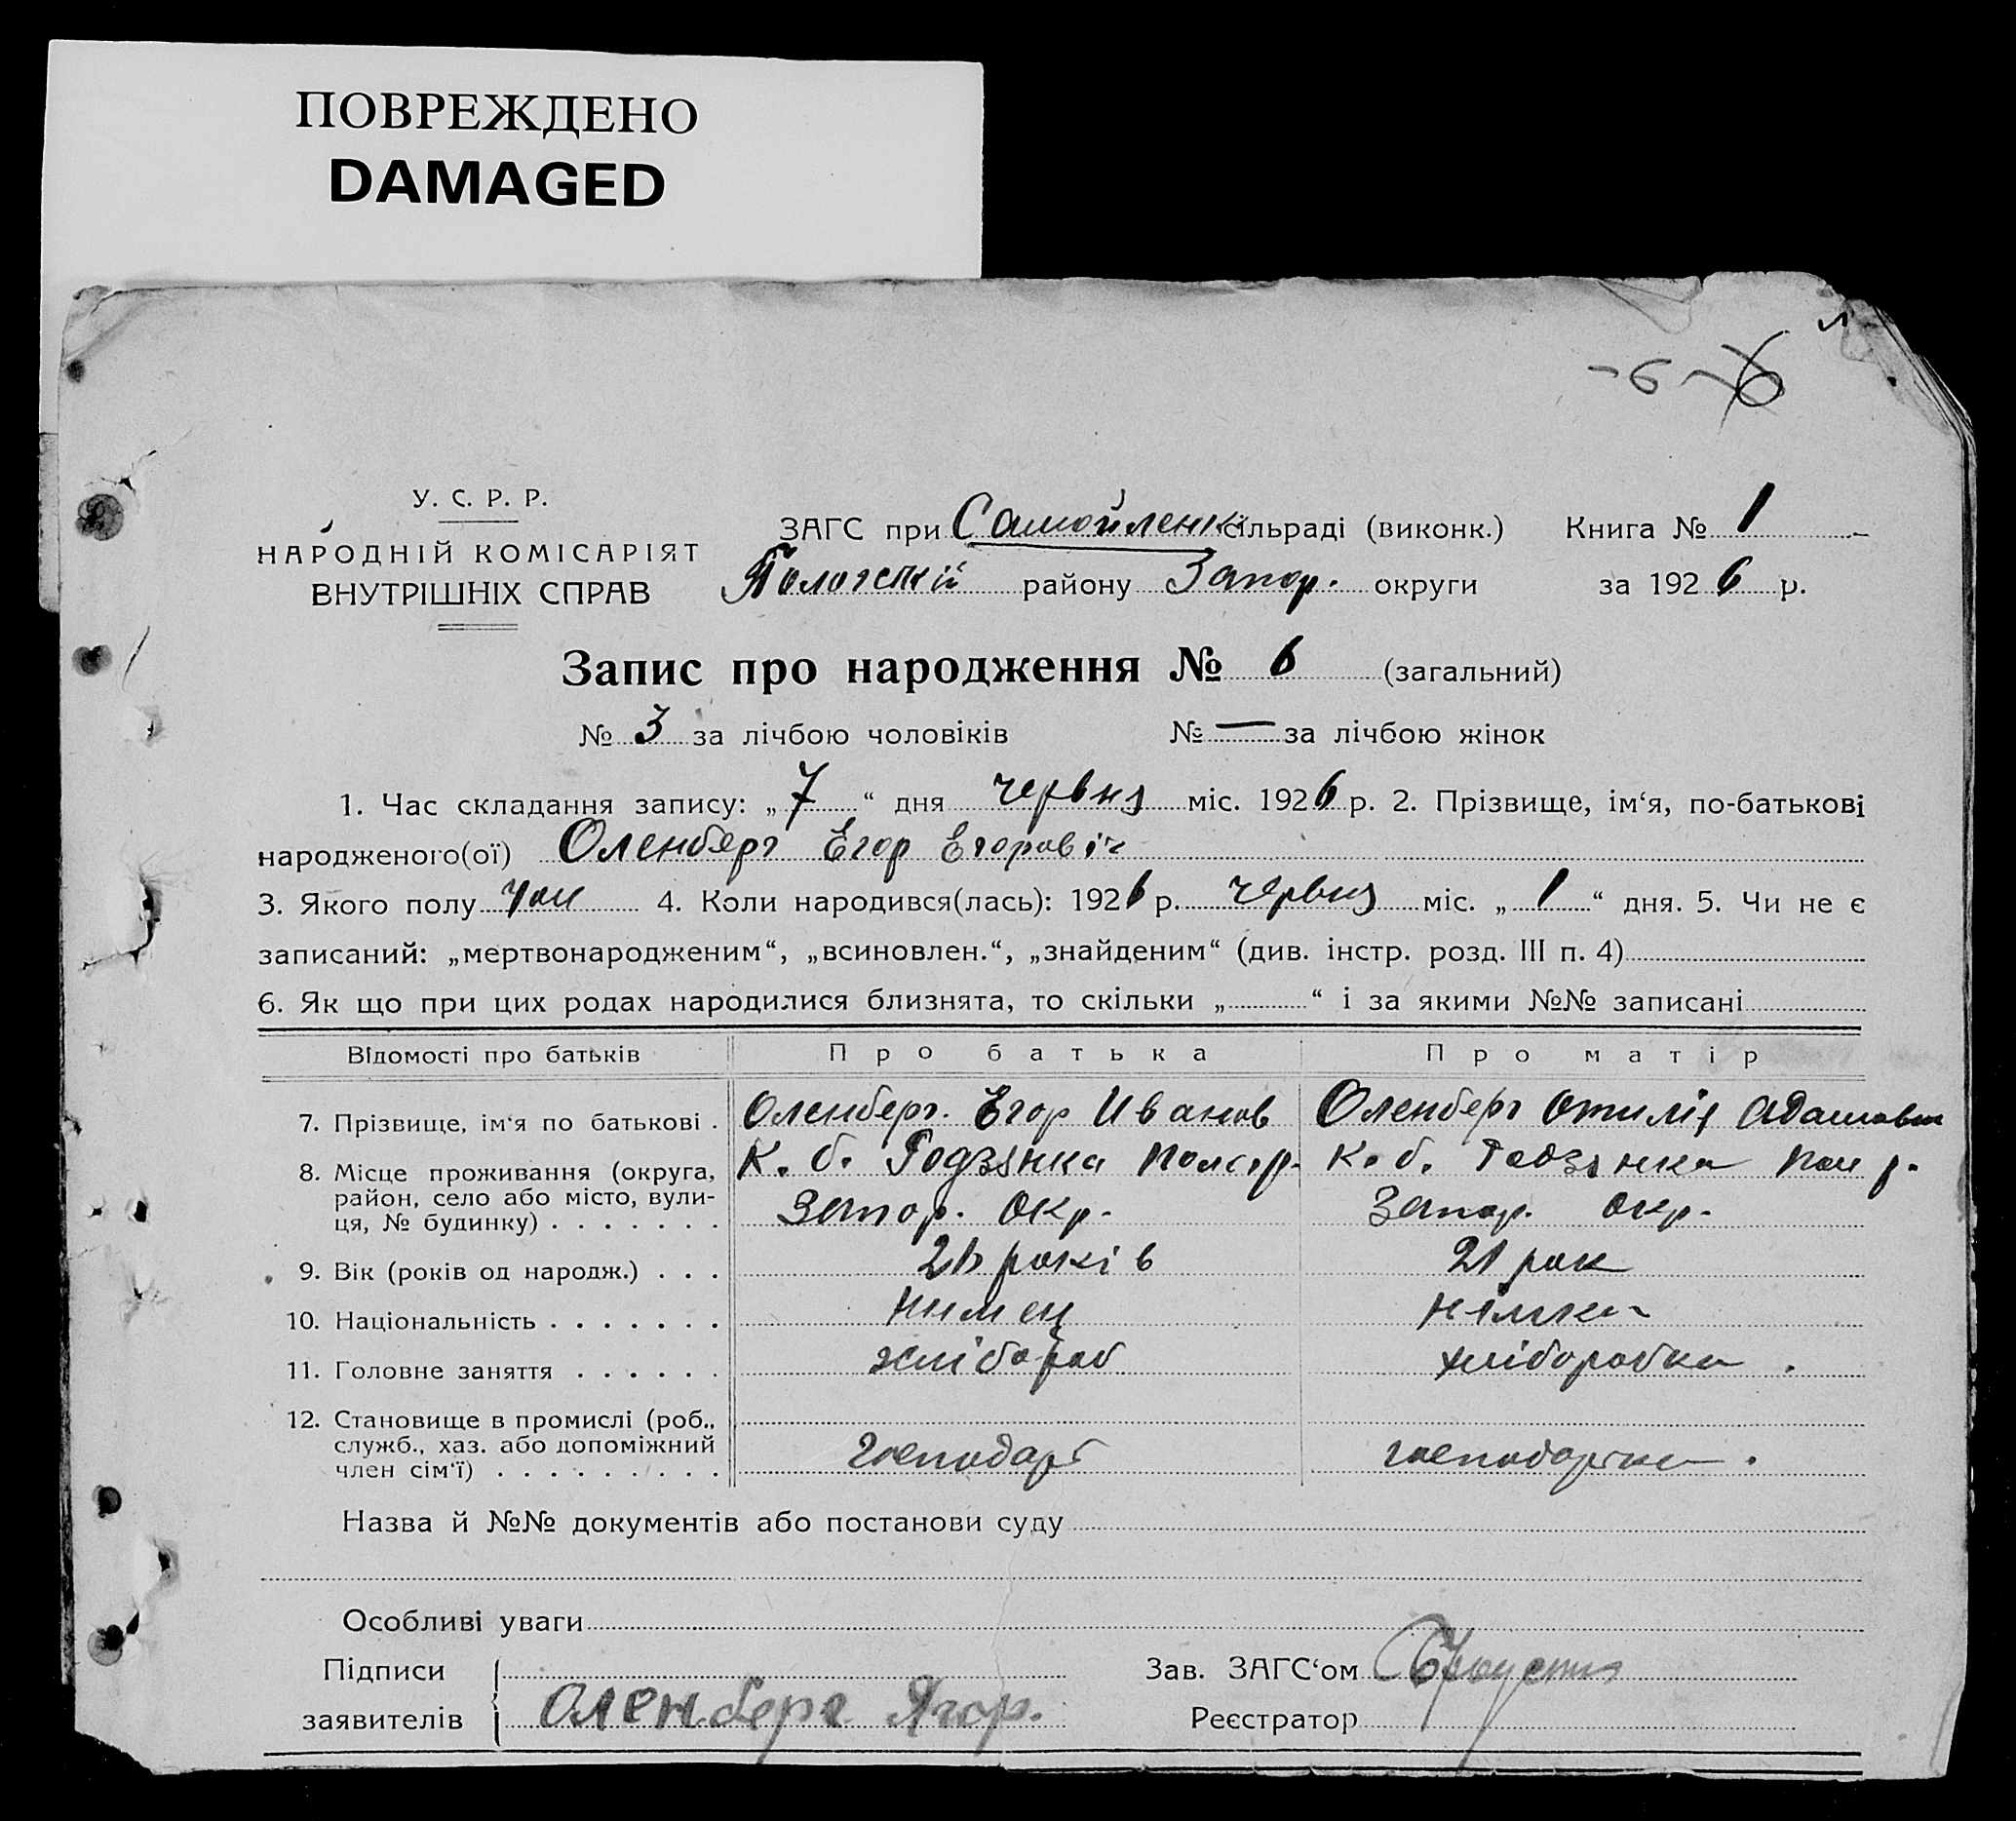 ПОВРЕЖДЕНО
DAMAGED
-6-
У. С. Р. Р.
НАРОДНІЙ КОМІСАРІЯТ
ВНУТРІШНІХ СПРАВ
ЗАГС при Самойленк сільраді (виконк.) Книга № 1
Пологській району Запор. округи за 1926 р.
Запис про народження № 6 (загальний)
№ 3 за лічбою чоловіків № — за лічбою жінок
1. Час складання запису: „7“ дня червня міс. 1926 р. 2. Прізвище, ім‘я, по-батькові
народженого(ої) Оленберг Егор Егоровіч
3. Якого полу чол 4. Коли народився(лась): 1926 р. червня міс. „1“ дня. 5. Чи не є
записаний: „мертвонародженим“, „всиновлен.“, „знайденим“ (див. інстр. розд. III п. 4)
6. Як що при цих родах народилися близнята, то скільки „ “ і за якими №№ записані
Відомості про батьків Про батька Про матір
7. Прізвище, ім‘я по батькові . Оленберг. Егор Иванов Оленберг Отилія Адамовна
8. Місце проживання (округа, К. б. Родзянка Пол. р. К. б. Родзянка Пол р.
район, село або місто, вули-
ця, № будинку) . . . . . . . Запор. Окр. Запор. Окр.
9. Вік (років од народж.) . . . років 21 рок
10. Національність . . . . . . . нимец німка
11. Головне заняття . . . . . . хлібороб хліборобка .
12. Становище в промислі (роб.,
служб., хаз. або допоміжний
член сім‘ї) . . . . . . . . . господарь господарка .
Назва й №№ документів або постанови суду
Особливі уваги
Підписи Зав. ЗАГС‘ом
заявителів Оленберг Ягор. Реєстратор